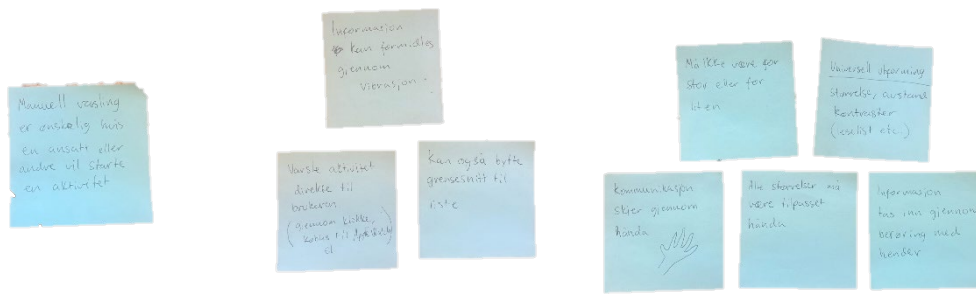 Manuell varsling
er ønskelig hvis
en ansatt eller
andre vil starte
en aktivitet
Informasjon
kan formidles
gjennom
vibrasjon.
Varsle aktivitet
direkte til
brukeren
(gjennom klokke,
kobles til
el
Kan også bytte
grensesnitt til
liste
Må ikke være for
stor eller for
liten
Universell utforming
størrelse, avstand
kontraster
(
Kommunikasjon
skjer gjennom
hånda
Alle størrelser må
være tilpasset
hånda
Informasjon
tas inn gjennom
berøring med
hender